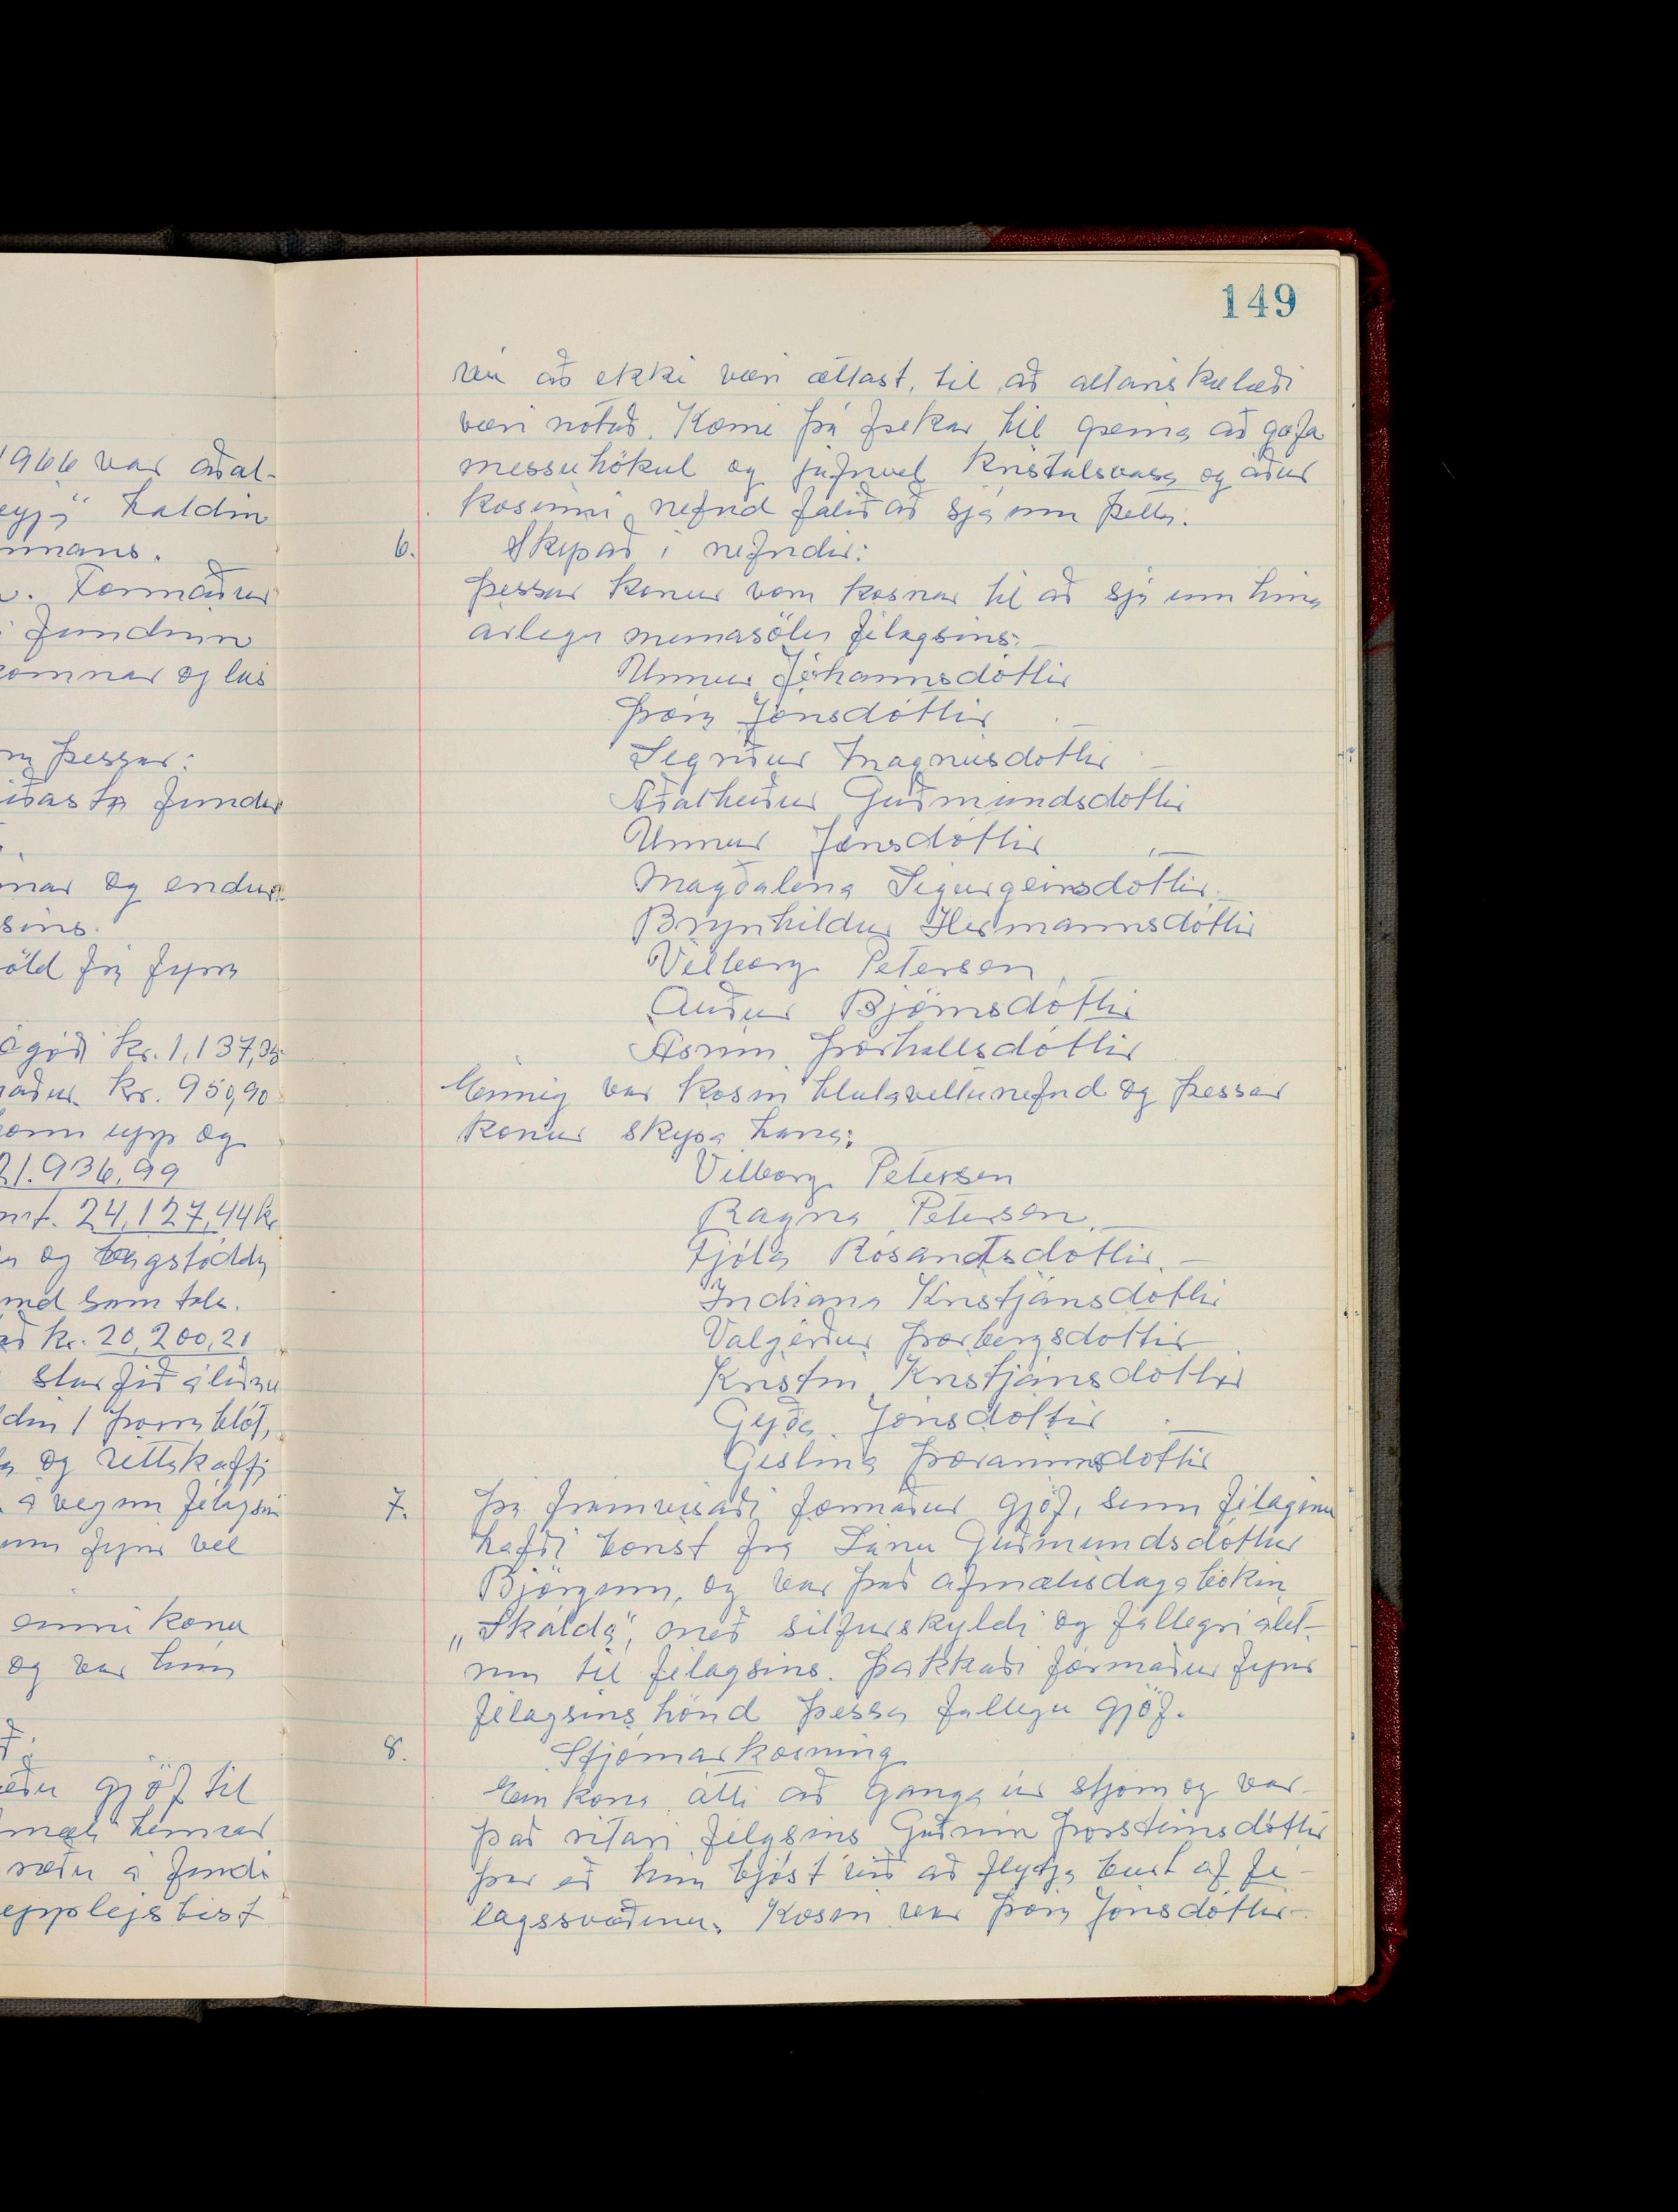 149
væri að ekki væri ætlast, til að altarisklæði
væri notað. Kæmi þá frekar til greina að gefa
messuhökul og jafnvel kristalsvasa og áður
kosinni nefnd falið að sjá um þetta.
6. Skipað í nefndir:
Þessar konur voru kosnar til að sjá um hina
árlegu munasölu félagsins:
Unnur Jóhannsdóttir
Þóra Jónsdóttir
Sigríður Magnúsdóttir
Aðalheiður Guðmundsdóttir
Unnur Jónsdóttir
Magdalena Sigurgeirsdóttir
Brynhildur Hermannsdóttir
Vilborg Petersen
Auður Björnsdóttir
Ásrún Þórhallsdóttir
Einnig var kosin hlutaveltunefnd og þessar
konur skipa hana:
Vilborg Petersen
Ragna Petersen
Fjóla Rósantsdóttir
Indíana Kristjánsdóttir
Valgerður Þorbergsdóttir
Kristín Kristjánsdóttir
Gyða Jónsdóttir
Gíslína Þórarinnsdóttir
7. Þá framvísaði formaður gjöf, sem félaginu
hafði borist frá Línu Guðmundsdóttur
Björgum, og var það afmælisdagabókin
„Skálda", með silfurskyldi og fallegri áletr-
un til félagsins. Þakkaði formaður fyrir
félagsins hönd þessa fallegu gjöf.
8. Stjórnarkosning
Ein kona átti að ganga úr stjórn og var
það ritari félagsins Guðrún Þorsteinsdóttir
þar eð hún bjóst við að flytja burt af fé-
lagssvæðinu. Kosin var Þóra Jónsdóttir
1966 var aðal-
haldin
Formaður
fundinn
og las
þessar:
síðasta fundar
og endur-
sins.
frá fyrra
ágóði kr. 1,137,35
kr. 950,90
upp og
21.936,99
24,127,44 kr
og
sem tala.
kr. 20,200,21
starfið á liðnu
1 þorrablót,
og réttakaffi
á vegum félagsins
fyrir vel
kona
og var hún
gjöf til
hennar
á fundi